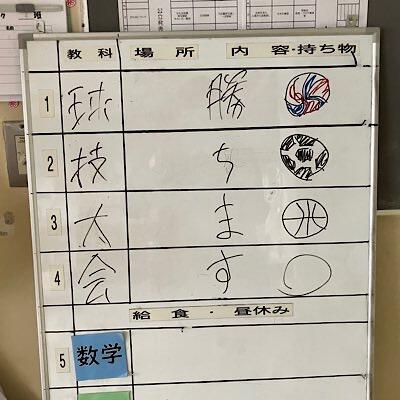 教科 場所 内容・持ち物
1 球 勝
2 技 ち
3 大 ま
4 会 す
給食・昼休み
5 数学